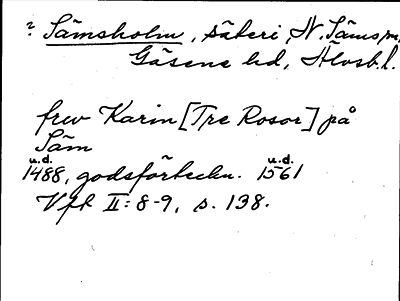 ? Sämsholm, säteri, N. Säms sn.
Gäsene hd, Älvsb. l.
frev Karin [Tre Rosor] på
Säm
u.d. u.d.
1488, godsförteckn. 1561
Vft II: 8-9, s. 138.